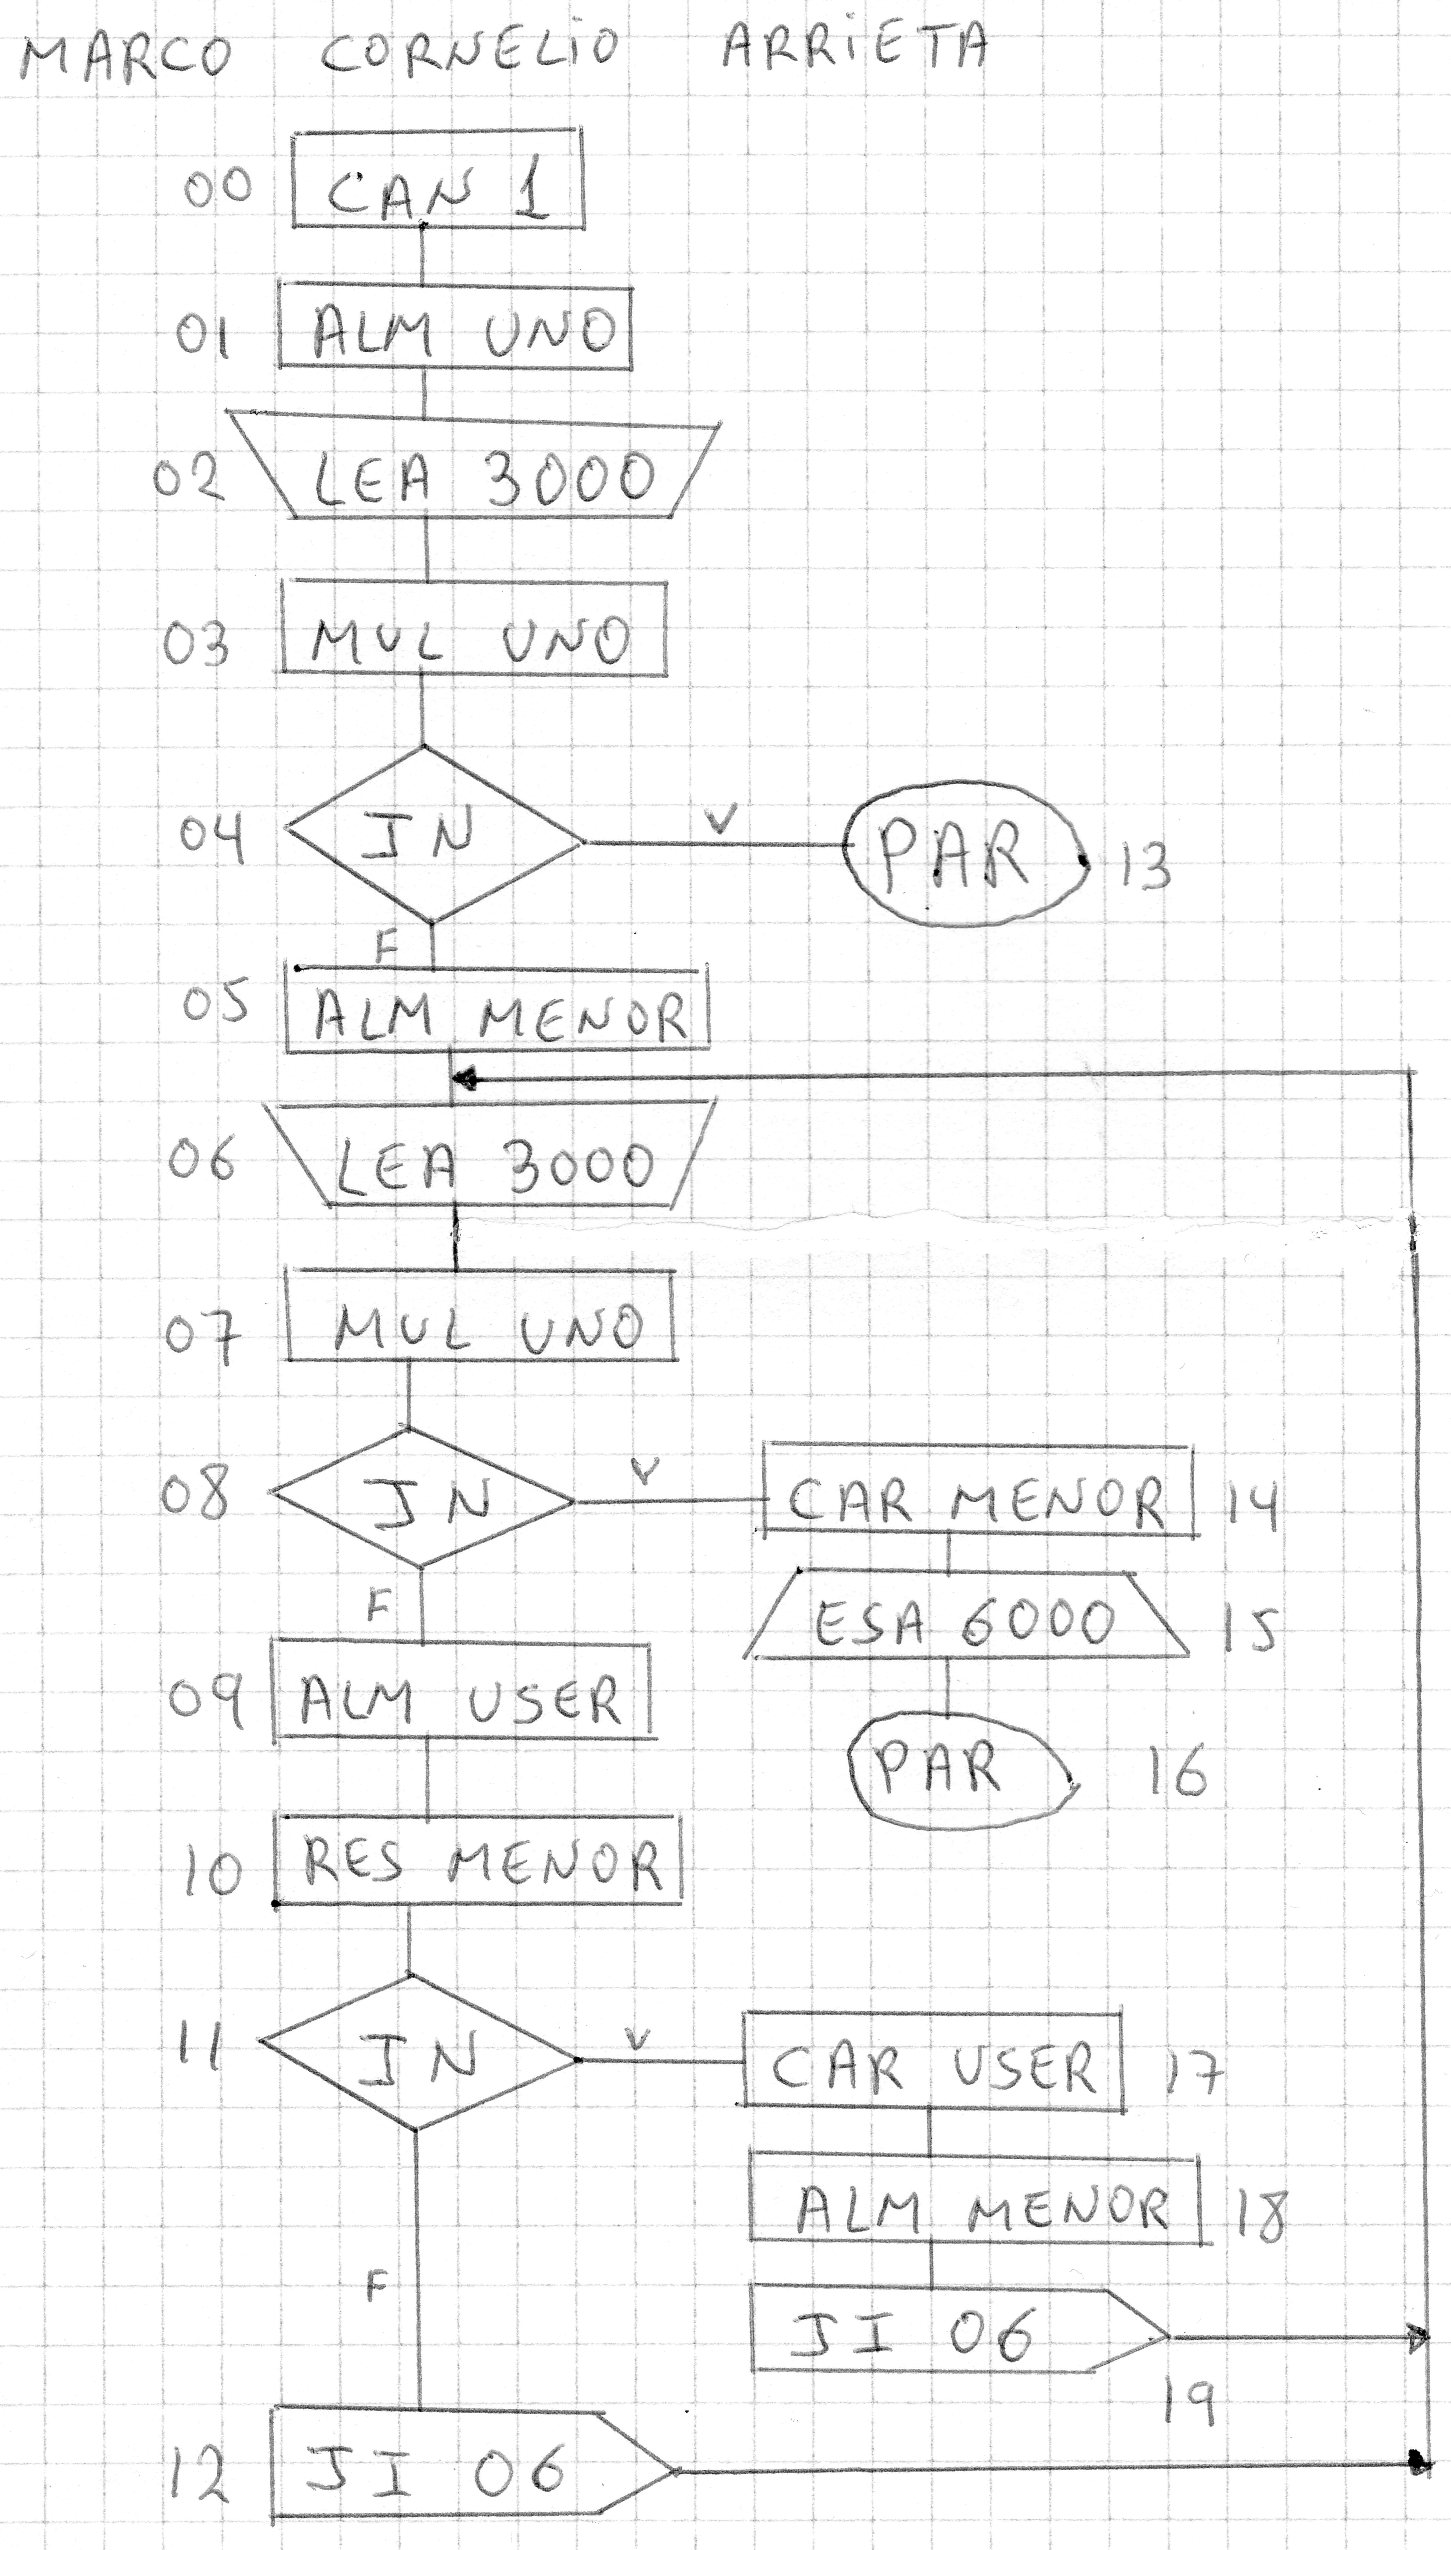 MARCO CORNELIO ARRIETA
00 CAN 1
01 ALM UNO
02 LEA 3000
03 MUL UNO
04 JN V PAR 13
F
05 ALM MENOR
06 LEA 3000
07 MUL UNO
08 JN V CAR MENOR 14
F ESA 6000 15
09 ALM USER
PAR 16
10 RES MENOR
11 JN V CAR USER 17
ALM MENOR 18
F
JI 06
19
12 JI 06